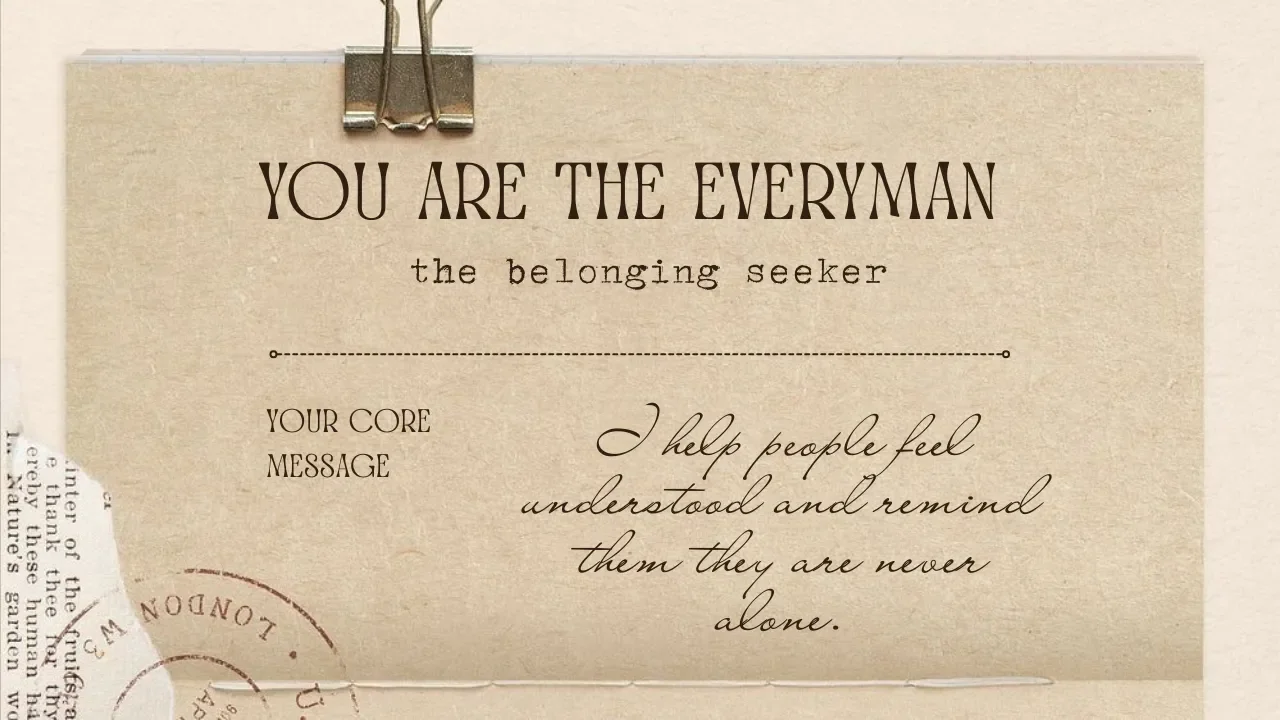 YOU ARE THE EVERYMAN
the belonging seeker
YOUR CORE
MESSAGE
I help people feel
understood and remind
them they are never
alone.
inter of the fruits, a
e thank thee for thy
ereby these human ha
Nature's garden wo
LONDON W3
U.